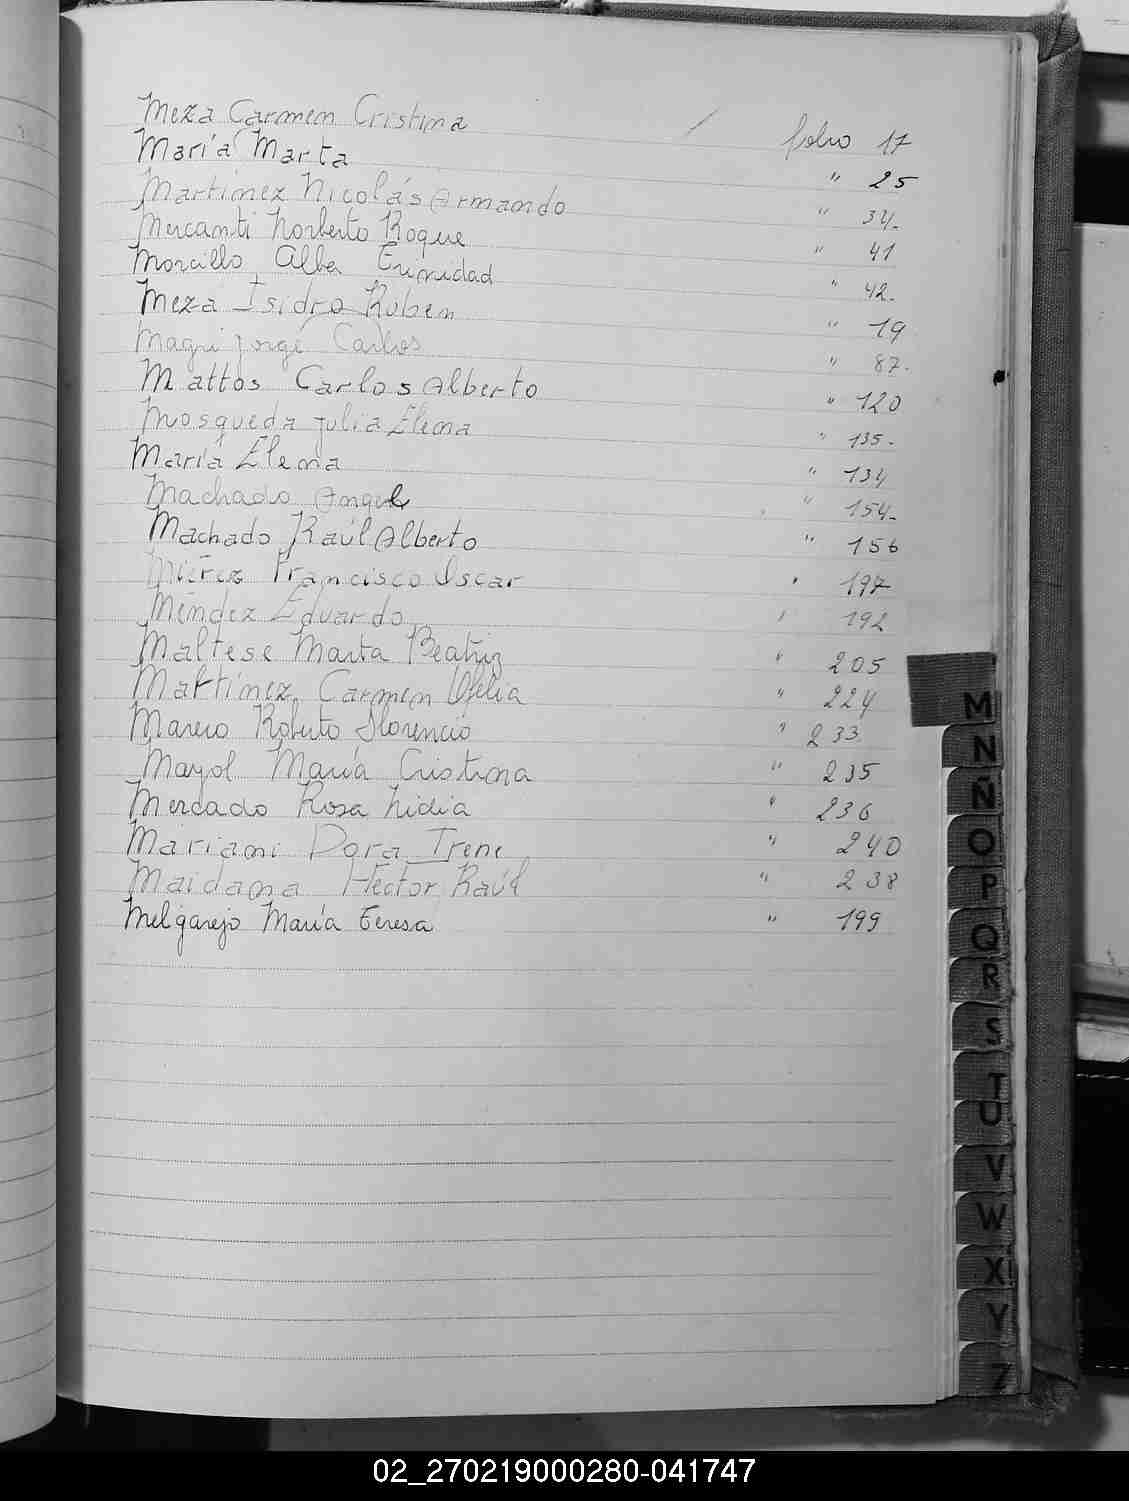 Meza Carmen Cristina folio 17
María Marta " 25
Martinez Nicolás Armando " 34.
Mercanti Norberto Roque " 41
Morcillo Alba Trinidad " 42.
Meza Isidro Ruben " 19
Magri Jorge Carlos " 87.
Mattos Carlos Alberto " 120
Mosqueda Julia Elena " 135.
María Elena " 134
Machado Angel " 154.
Machado Raúl Alberto " 156
Mierez Francisco Oscar " 197
Méndez Eduardo " 192
Maltese Marta Beatriz " 205
Martínez Carmen Ofelia " 224
Marero Roberto Florencio " 233
Mayol María Cristina " 235
Mercado Rosa Nidia " 236
Mariani Dora Irene " 240
Maidana Hector Raúl " 238
Melgarejo María Teresa " 199
M
N
Ñ
O
P
Q
R
S
T
U
V
W
X
Y
Z
02_270219000280-041747